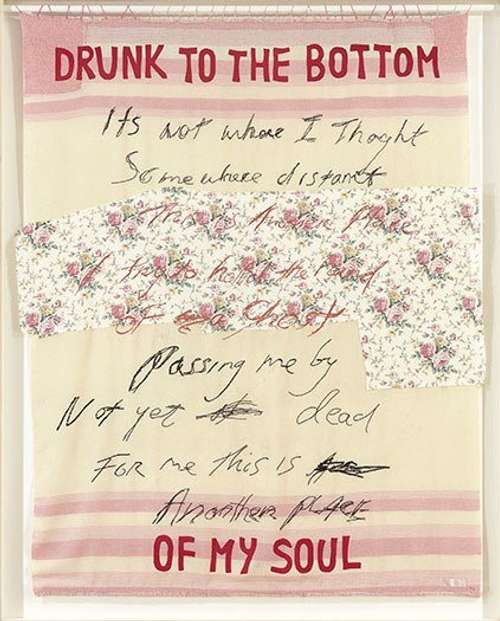 DRUNK TO THE BOTTOM
Its not where I Thoght
Somewhere distant
This is Another Place
I try to hold the hand
of a Ghost
Passing me by
Not yet dead
FOR me this is
Anorther place
OF MY SOUL